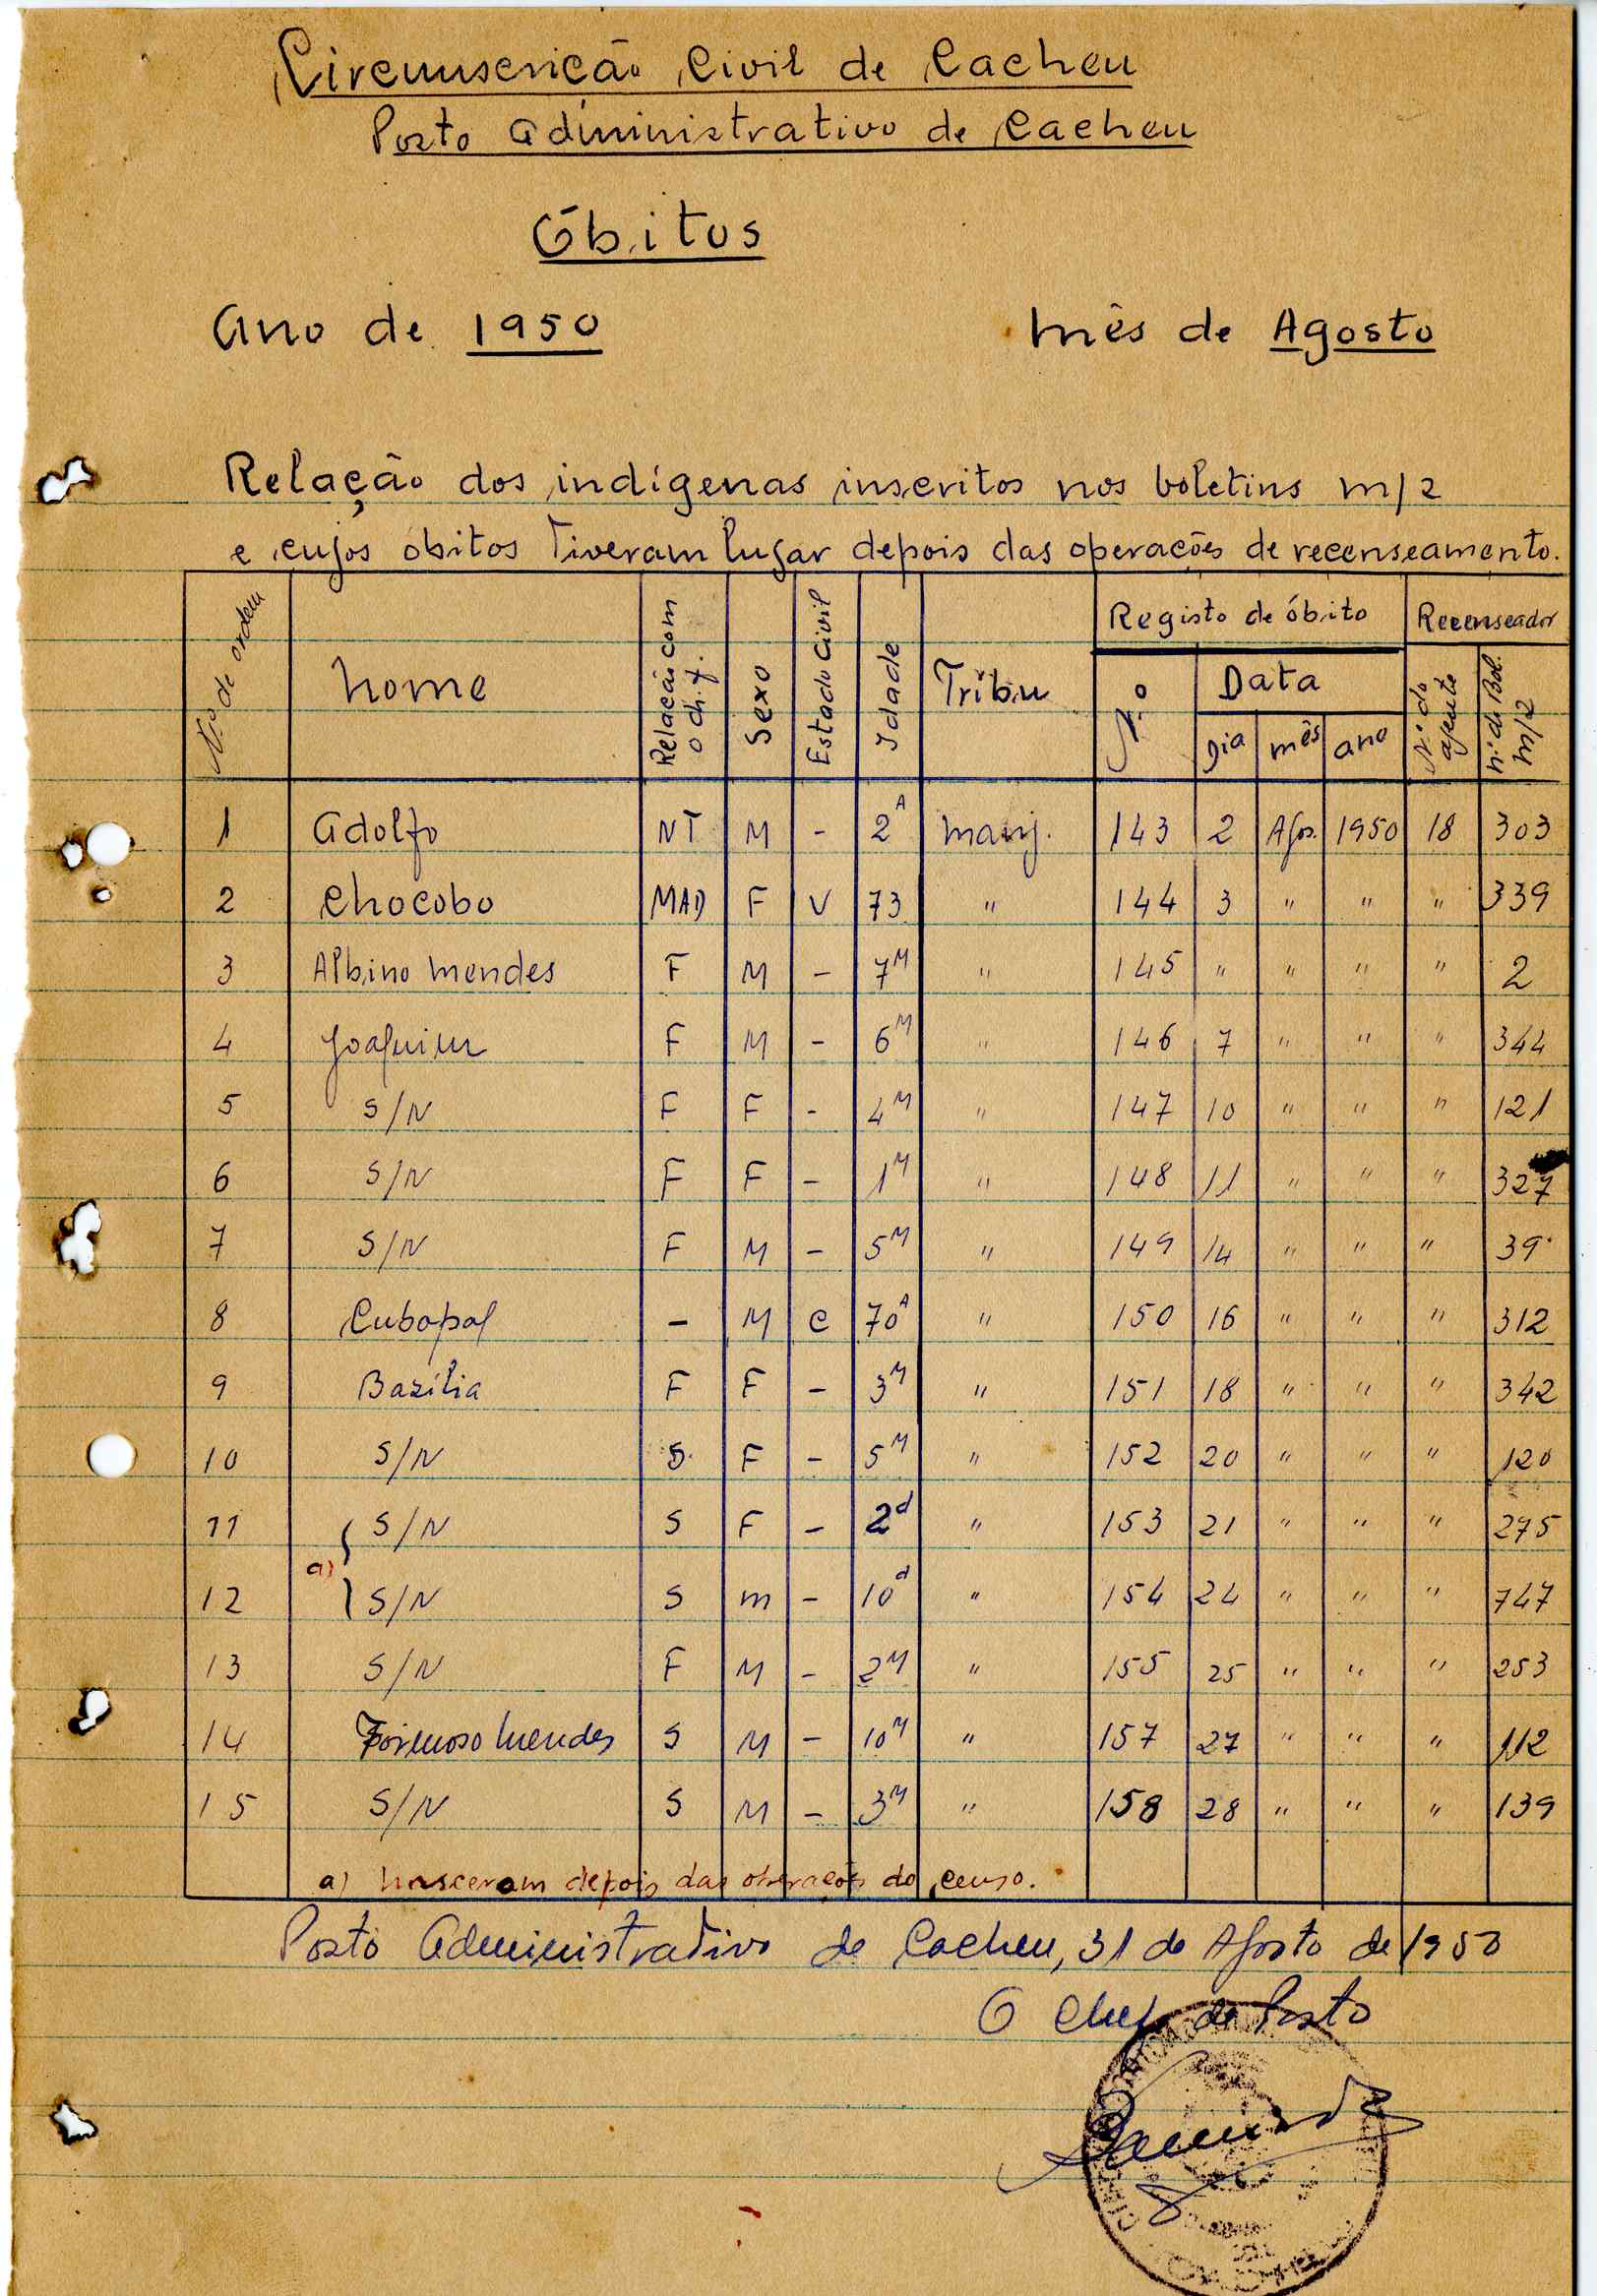 Circunscrição Civil de Cacheu
Posto Administrativo de Cacheu
Óbitos
Ano de 1950 Mês de Agosto
Relação dos indígenas inscritos nos boletins m/2
e cujos óbitos Tiveram lugar depois das operações de recenseamento.
N.º de ordem Nome Relação com o ch. f. Sexo Estado Civil Idade Tribu Registo de óbito Recenseador
N.º Data N.º do agente n.º do Bol. m/2
Dia mês ano
1 Adolfo NT M - 2A Manj. 143 2 Agos. 1950 18 303
2 Chocobo MAD F V 73 " 144 3 " " " 339
3 Albino Mendes F M - 7M " 145 " " " " 2
4 Joaquim F M - 6M " 146 7 " " " 344
5 S/N F F - 4M " 147 10 " " " 121
6 S/N F F - 1M " 148 11 " " " 327
7 S/N F M - 5M " 149 14 " " " 39
8 Cubopal - M C 70A " 150 16 " " " 312
9 Bazília F F - 3M " 151 18 " " " 342
10 S/N S F - 5M " 152 20 " " " 120
11 S/N S F - 2d " 153 21 " " " 275
a)
12 S/N S m - 10d " 154 24 " " " 747
13 S/N F M - 2M " 155 25 " " " 253
14 Formoso Mendes S M - 10M " 157 27 " " " 112
15 S/N S M - 3M " 158 28 " " " 139
a) Nasceram depois das operações do censo.
Posto Administrativo de Cacheu, 31 de Agosto de 1950
O Chefe de Posto